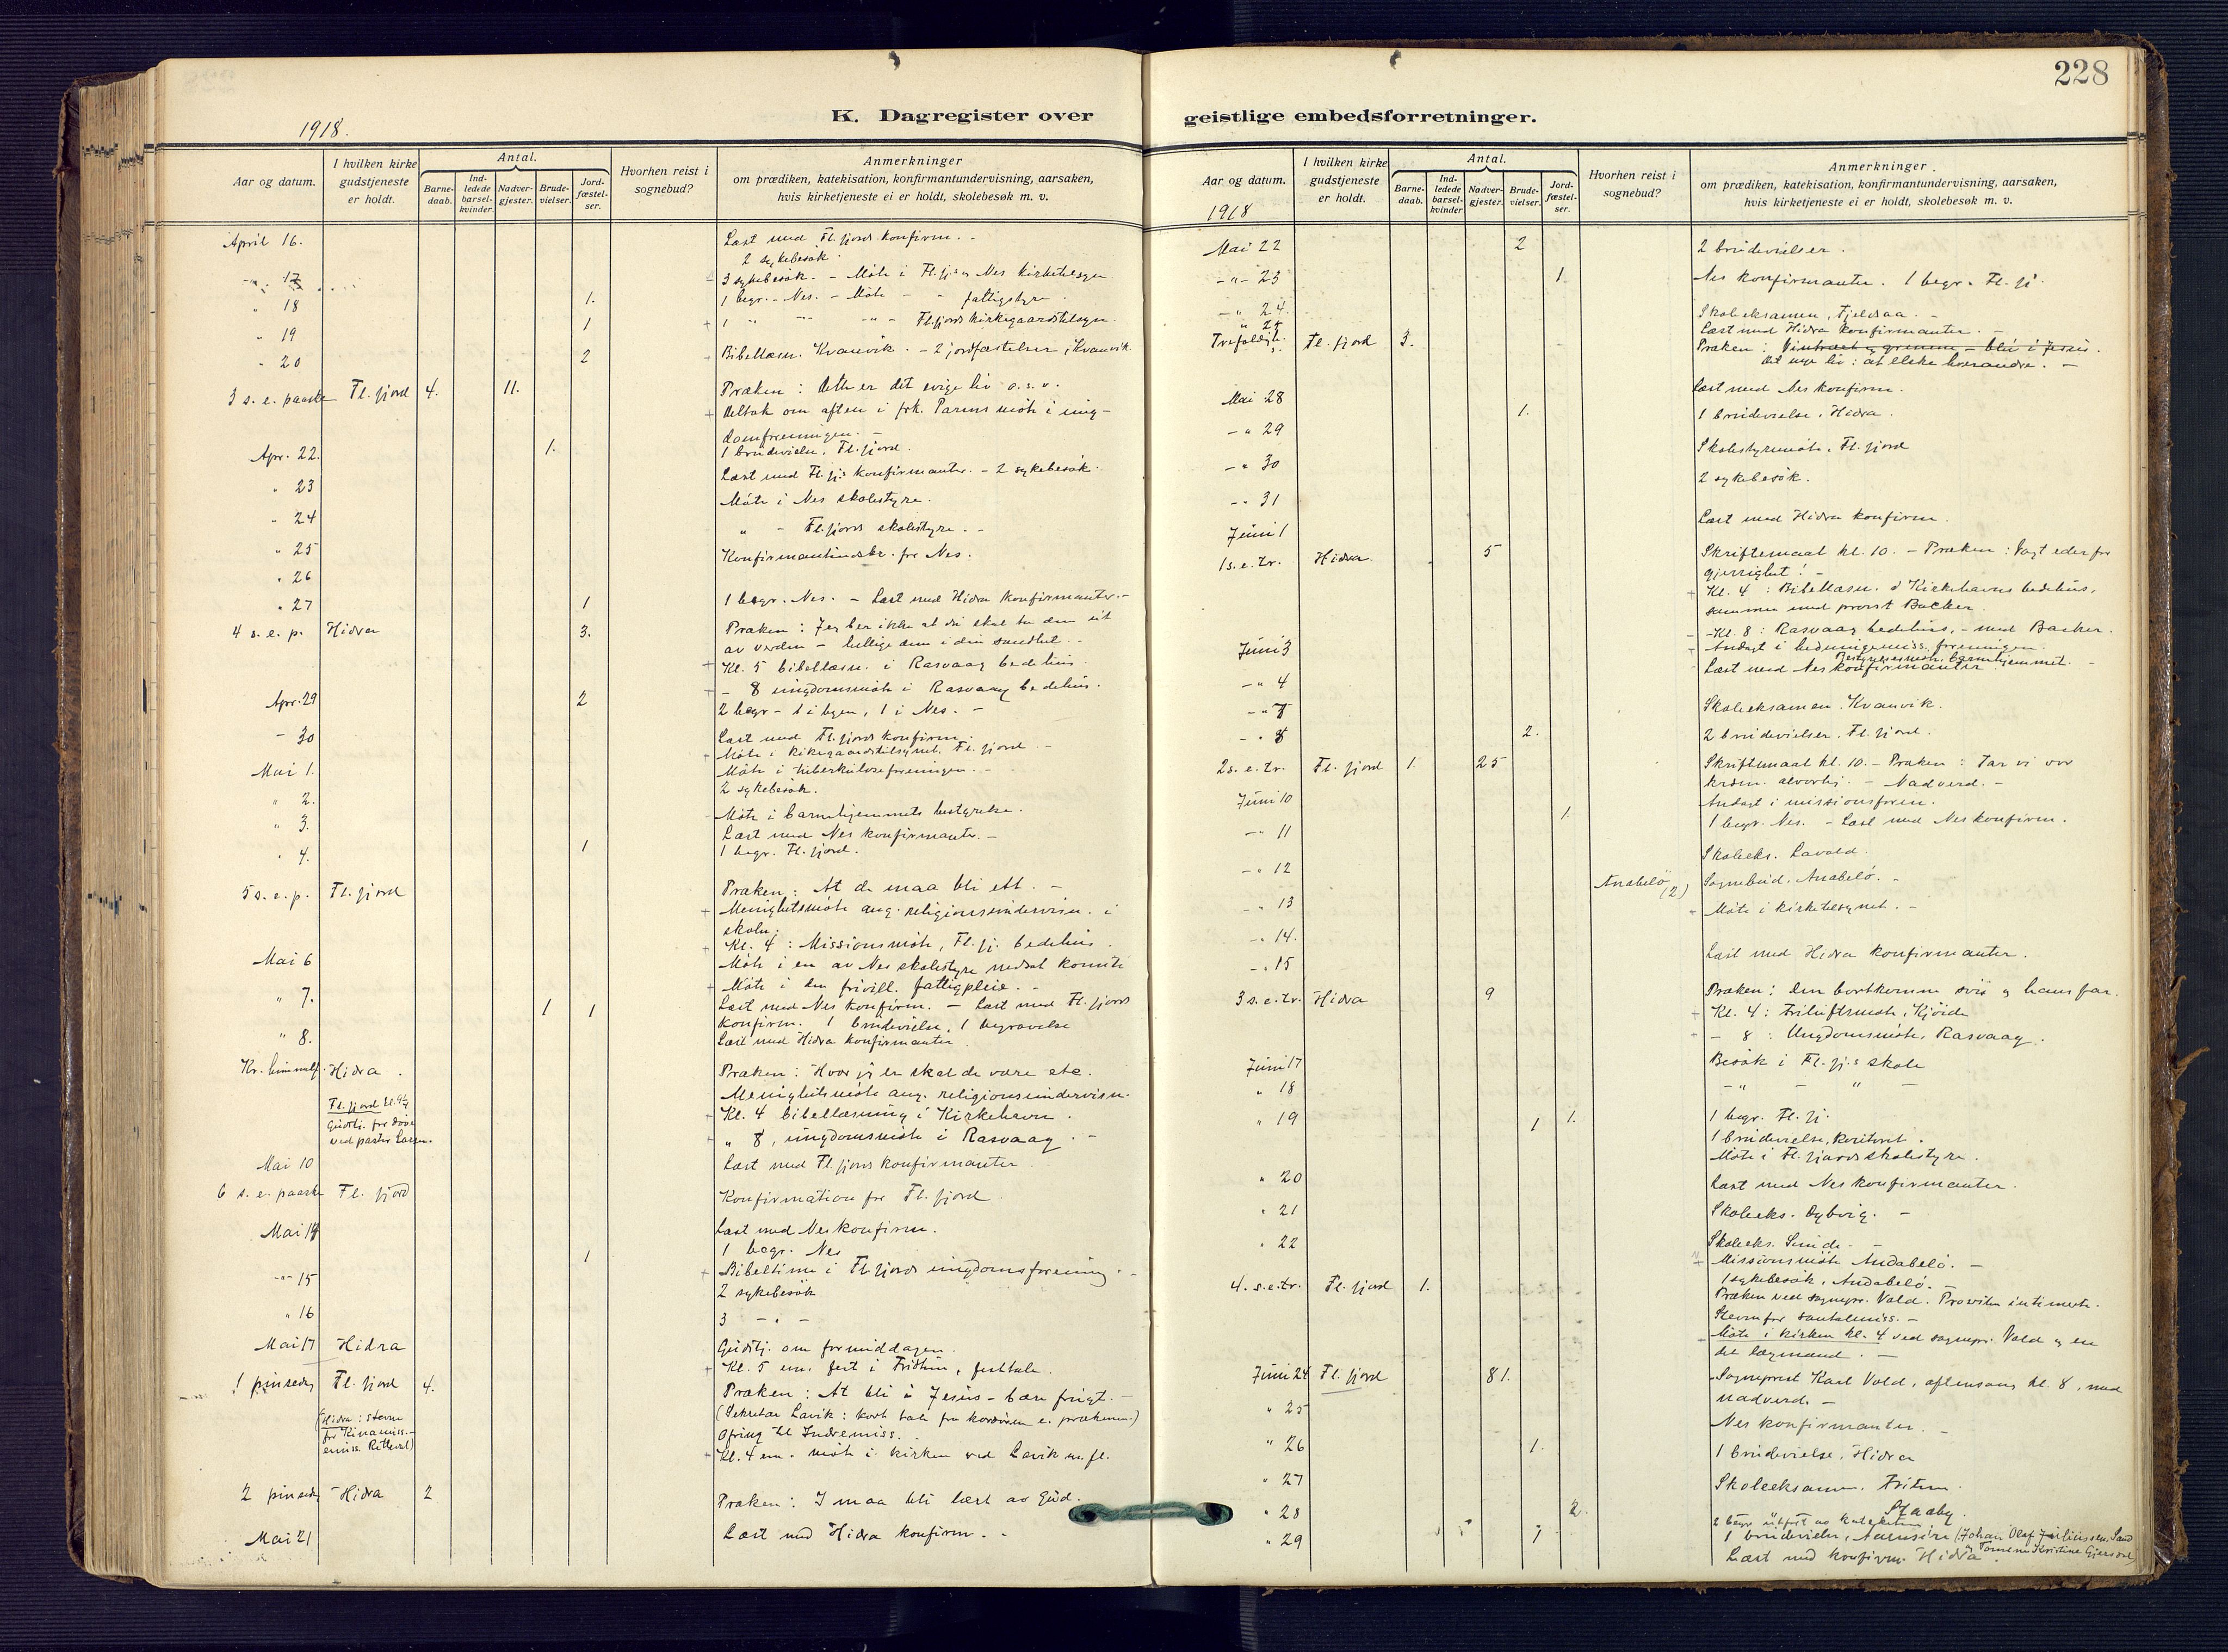 228
K. Dagregister over geistlige embedsforretninger.
1918.
Aar og datum.
I hvilken kirke gudstjeneste er holdt.
Antal.
Barnedaab.
Indledede barselkvinder.
Nadvergjester.
Brudevielser.
Jordfæstelser.
Hvorhen reist i sognebud?
Anmerkninger
om prædiken, katekisation, konfirmantundervisning, aarsaken,
hvis kirketjeneste ei er holdt, skolebesøk m. v.
April 16. Læst med Fl.fjords konfirm. -
2 sykebesøk.
" 17 3 sykebesøk. - Møte i Fl.fj. og Nes kirketilsyn
" 18 1. 1 begr. - Nes. - Møte - " fattigstyre.
" 19 1 1 " - " - Fl.fjords kirkegaardstilsyn.
" 20 2 Bibellæsn. Kvanvik. - 2 jordfæstelser, Kvanvik.
3 s. e. paaske Fl. fjord 4. 11. Præken: Dette er det evige liv o. s. v.
Deltok om aften i frk. Parms møte i ung-
domsforeningen. -
Apr. 22. 1. 1 brudevielse, Fl. fjord.
" 23 Læst med Fl. fj.s konfirmanter. - 2 sykebesøk.
" 24 Møte i Nes skolestyre.
" 25 " - Fl.fjords skolestyre. -
" 26 Konfirmantindskr. for Nes.
" 27 1 1 begr. Nes. - Læst med Hidra konfirmanter. -
4 s. e. p. Hidra 3. Præken: Jeg ber ikke at du skal ta dem ut
av verden - hellige dem i din sandhet. -
Kl. 5 bibellæsn. i Rasvaag bedehus.
- 8 ungdomsmøte i Rasvaag bedehus.
Apr. 29 2 2 begr - 1 i byen, 1 i Nes. -
- 30 Læst med Fl. fjords konfirm.
Møte i kirkegaardstilsynet. Fl. fjord -
Mai 1. Møte i tuberkuloseforeningen. -
2 sykebesøk.
" 2. Møte i barnehjemmets bestyrelse.
" 3. Læst med Nes konfirmanter. -
" 4. 1 1 begr. Fl. fjord.
5 s. e. p. Fl. fjord Præken: At de maa bli ett. -
Menighetsmøte ang. religionsundervisn. i
skolen.
Kl. 4: Missionsmøte, Fl. fj. bedehus.
Mai 6 Møte i en av Nes skolestyre nedsat komite
Møte i den frivill. fattigpleie. -
" 7. 1 1 Læst med Nes konfirm. - Læst med Fl. fjords
konfirm. 1 brudevielse, 1 begravelse
" 8. Læst med Hidra konfirmanter.
Kr. himmelf. Hidra. Præken: Hvor jeg er skal de være etc.
Menighetsmøte ang. religionsundervisn.
Fl. fjord
Gudstj. for døve
ved pastor
Kl. 4 bibellæsning i Kirkehavn.
" 8, ungdomsmøte i Rasvaag. -
Mai 10 Læst med Fl. fjords konfirmanter.
6 s. e. paaske Fl. fjord Konfirmation for Fl. fjord.
Mai 14 Læst med Nes konfirm.
1 1 begr. Nes
Bibeltime i Fl.fjords ungdomsforening. -
-"- 15 2 sykebesøk
" 16 3 - " -
Mai 17 Hidra Gudstj. om formiddagen.
Kl. 5 em. fest i Fridtun, festtale.
1 pinsedag Fl. fjord 4. Præken: At bli i Jesus - bære frugt. -
(Hidra: stevne
for Kinamiss. -
emiss.
(Sekretær Lavik: kort tale fra kordøren e. prækenen.)
Ofring til Indremiss.
Kl. 4 em. møte i kirken ved Lavik m. fl.
2 pinsedag Hidra 2 Præken: I maa bli lært av Gud.
Mai 21 Læst med Hidra konfirm. -
Aar og datum.
1918
I hvilken kirke gudstjeneste er holdt.
Antal.
Barnedaab.
Indledede barselkvinder
Nadvergjester.
Brudevielser.
Jordfæstelser.
Hvorhen reist i sognebud?
Anmerkninger.
om prædiken, katekisation, konfirmantundervisning, aarsaken,
hvis kirketjeneste ei er holdt, skolebesøk m. v.
Mai 22 2 2 brudevielser.
-"- 23 1. Nes konfirmanter. 1 begr. Fl. fj.
-" 24. Skoleeksamen, Fjeldsaa. -
" 25 Læst med Hidra konfirmanter. -
Trefoldigh. Fl. fjord 3. Præken: Vintræet og grenene - bliv i Jesus.
Det nye liv: at elske hverandre. -
Mai 28 Læst med Nes konfirm.
1. 1 brudevielse, Hidra.
-" 29 Skolestyremøte, Fl. fjord
-" 30 2 sykebesøk.
-" 31
Juni 1 Læst med Hidra konfirm.
1 s. e. tr. Hidra. 5 Skriftemaal kl. 10. - Præken: Vogt eder for
gjerrighet! -
Kl. 4: Bibellæsn. i Kirkehavns bedehus,
sammen med provst Barker.
- Kl. 8: Rasvaag bedehus, - med Barker.
Juni 3 Andagt i hedningemiss. foreningen.
Bestyrelsesmøte, barnehjemmet. -
-" 4 Læst med Nes konfirmanter
-" 7 Skoleeksamen. Kvanvik.
-" 8 2. 2 brudevielser. Fl. fjord.
2 s. e. tr. Fl. fjord 1. 25 Skriftemaal kl. 10. - Præken: Tar vi vor
kristn. alvorlig. - Nadverd. -
Juni 10 Andagt i missionsforen.
-" 11 1. 1 begr. Nes. - Læst med Nes konfirm.
-" 12 Skoleeks. Lavold.
-" 13 Anabelø (2) Sognebud. Anabelø. -
Møte i kirketilsynet. -
-" 14.
-" 15 Læst med Hidra konfirmanter.
3 s. e. tr. Hidra 9 Præken: den bortkomne søn og hans far.
Kl. 4: Friluftsmøte, Kjøide
- 8: Ungdomsmøte, Rasvaag.
Juni 17 Besøk i Fl. fj.s skole
" 18 - " - " -
" 19 1 1. 1 begr. Fl. fj.
1 brudevielse, kontoret.
Møte i Fl. fjords skolestyre.
" 20 Læst med Nes konfirmanter.
" 21 Skoleeks. Dybvig. -
" 22 Skoleeks. Sunde. -
Missionsmøte Andabelø. -
1 sykebesøk, Andabelø. -
4. s. e. tr. Fl. fjord 1. Præken ved sognepr. Vold. Provsten intimerte.
Stevne for santalmiss. -
Møte i kirken kl. 4 ved sognepr. Vold og en
del lægmænd. -
Juni 24 Fl. fjord 81. Sogneprest Karl Vold, aftensang kl. 8, med
nadverd. -
" 25 Nes konfirmanter. -
" 26 1. 1 brudevielse, Hidra
" 27 Skoleeksamen. Fritun.
" 28 2. Staaby.
2 begr. utført av kateketen
" 29 1 1 brudevielse, (Johan Olaf Juliussen Sand
og Tomine Kristine
Læst med konfirm. Hidra.